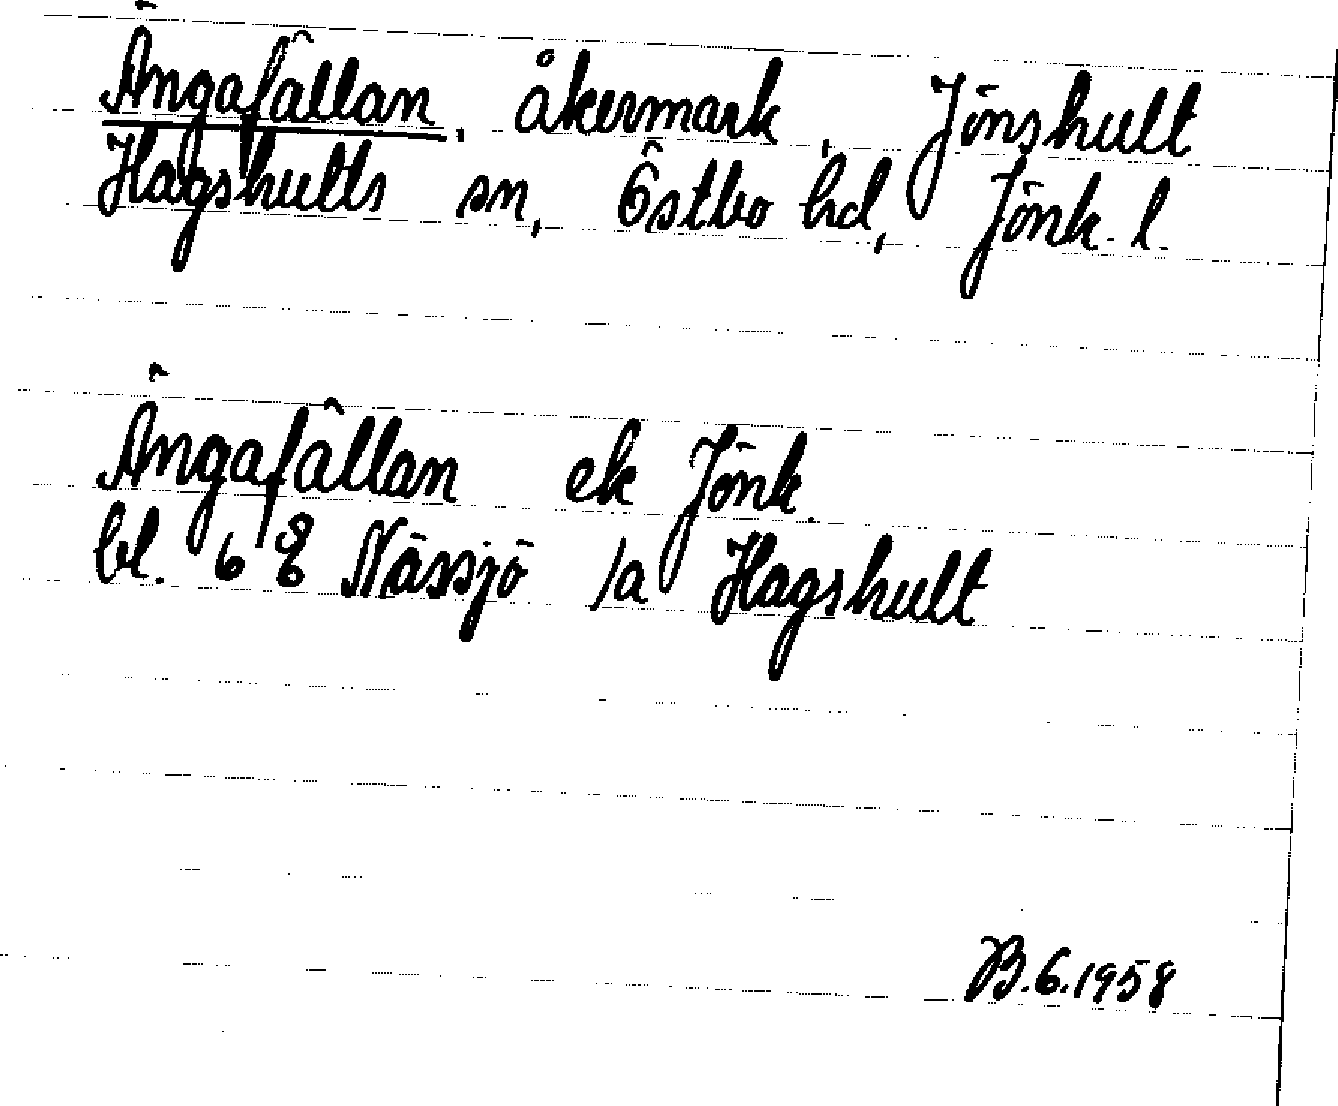 Ängafällan, åkermark, Jönshult
Hagshults sn, Östbo hd, Jönk. l.
Ängafällan ek Jönk.
bl. 6 8 Nässjö /a Hagshult
B.6.1958